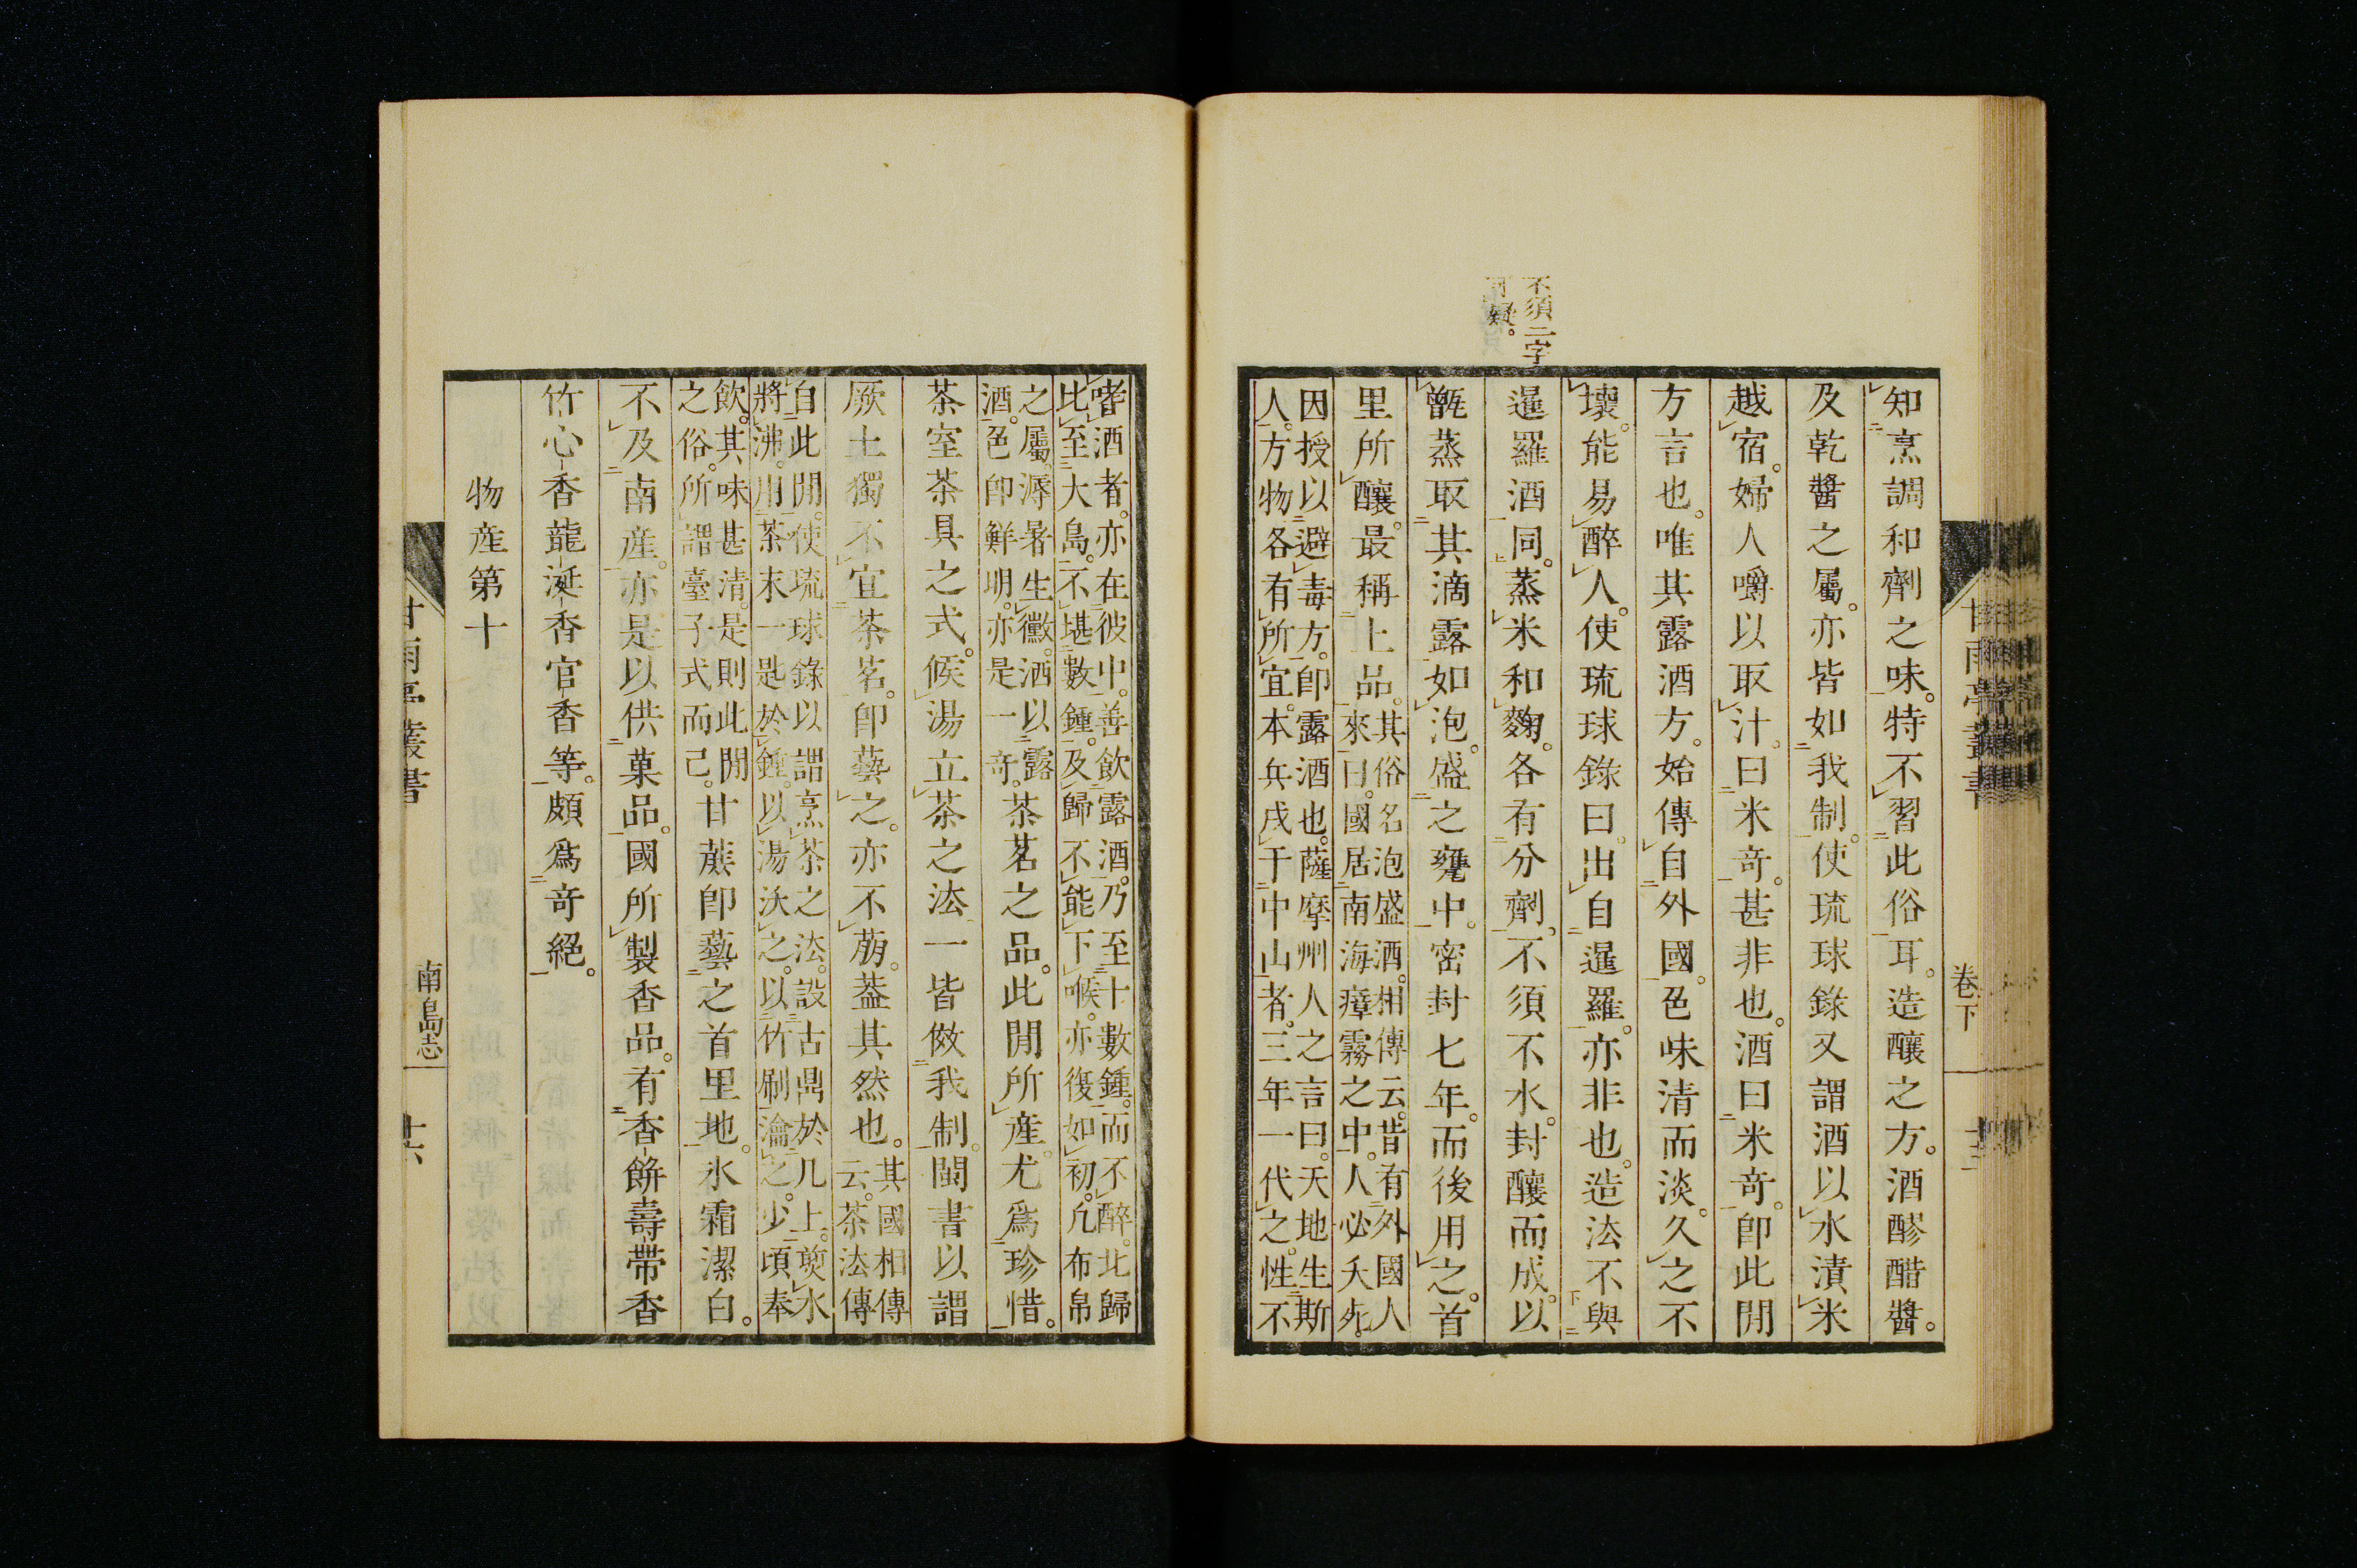 不須二字
可疑。
知烹調和劑之味。特不習此俗耳。造釀之方。酒醪醋醬。
及乾醬之屬。亦皆如我制。使琉球錄又謂酒以水漬米
越宿。婦人嚼以取汁。曰米奇。甚非也。酒曰米奇。卽此閒
方言也。唯其露酒方。始傳自外國。色味清而淡。久之不
壞。能易醉人。使琉球錄曰。出自暹羅。亦非也。造法不與
暹羅酒同。蒸米和麴。各有分劑。不須不水。封釀而成。以
甑蒸取其滴露如泡。盛之甕中。密封七年。而後用之。首
里所釀。最稱上品。
其俗名泡盛酒。相傳云。昔有外國人
來曰。國居南海瘴霧之中。人必夭死。
因授以避毒方。卽露酒也。薩摩州人之言曰。天地生斯
人。方物各有所宜。本兵戌于中山者。三年一代之。性不
嗜酒者。亦在彼中。善飲露酒。乃至十數鍾。而不醉。北歸
比至大島。不堪數鍾。及歸不能下喉。亦復如初。凡布帛
之屬。溽暑生黴。酒以露
酒。色卽鮮明。亦是一奇。
茶茗之品。此閒所產。尤爲珍惜。
茶室茶具之式。候湯立茶之法。一皆倣我制。閩書以謂
厥土獨不宜茶茗。卽藝之。亦不萠。葢其然也。
其國相傳
云。茶法傳
自此閒。使琉球錄以謂烹茶之法。設古鼎於几上。煎水
將沸。用茶末一匙於鍾。以湯沃之。以竹刷瀹之。少頃奉
飲。其味甚清。是則此閒
之俗。所謂臺子式而已。
甘蔗卽藝之首里地。氷霜潔白。
不及南產。亦是以供菓品。國所製香品。有香餅壽帶香
竹心香龍涎香官香等。頗爲奇絕。
物產第十
甘雨亭叢書
卷下
甘雨亭叢書
南島志
十六